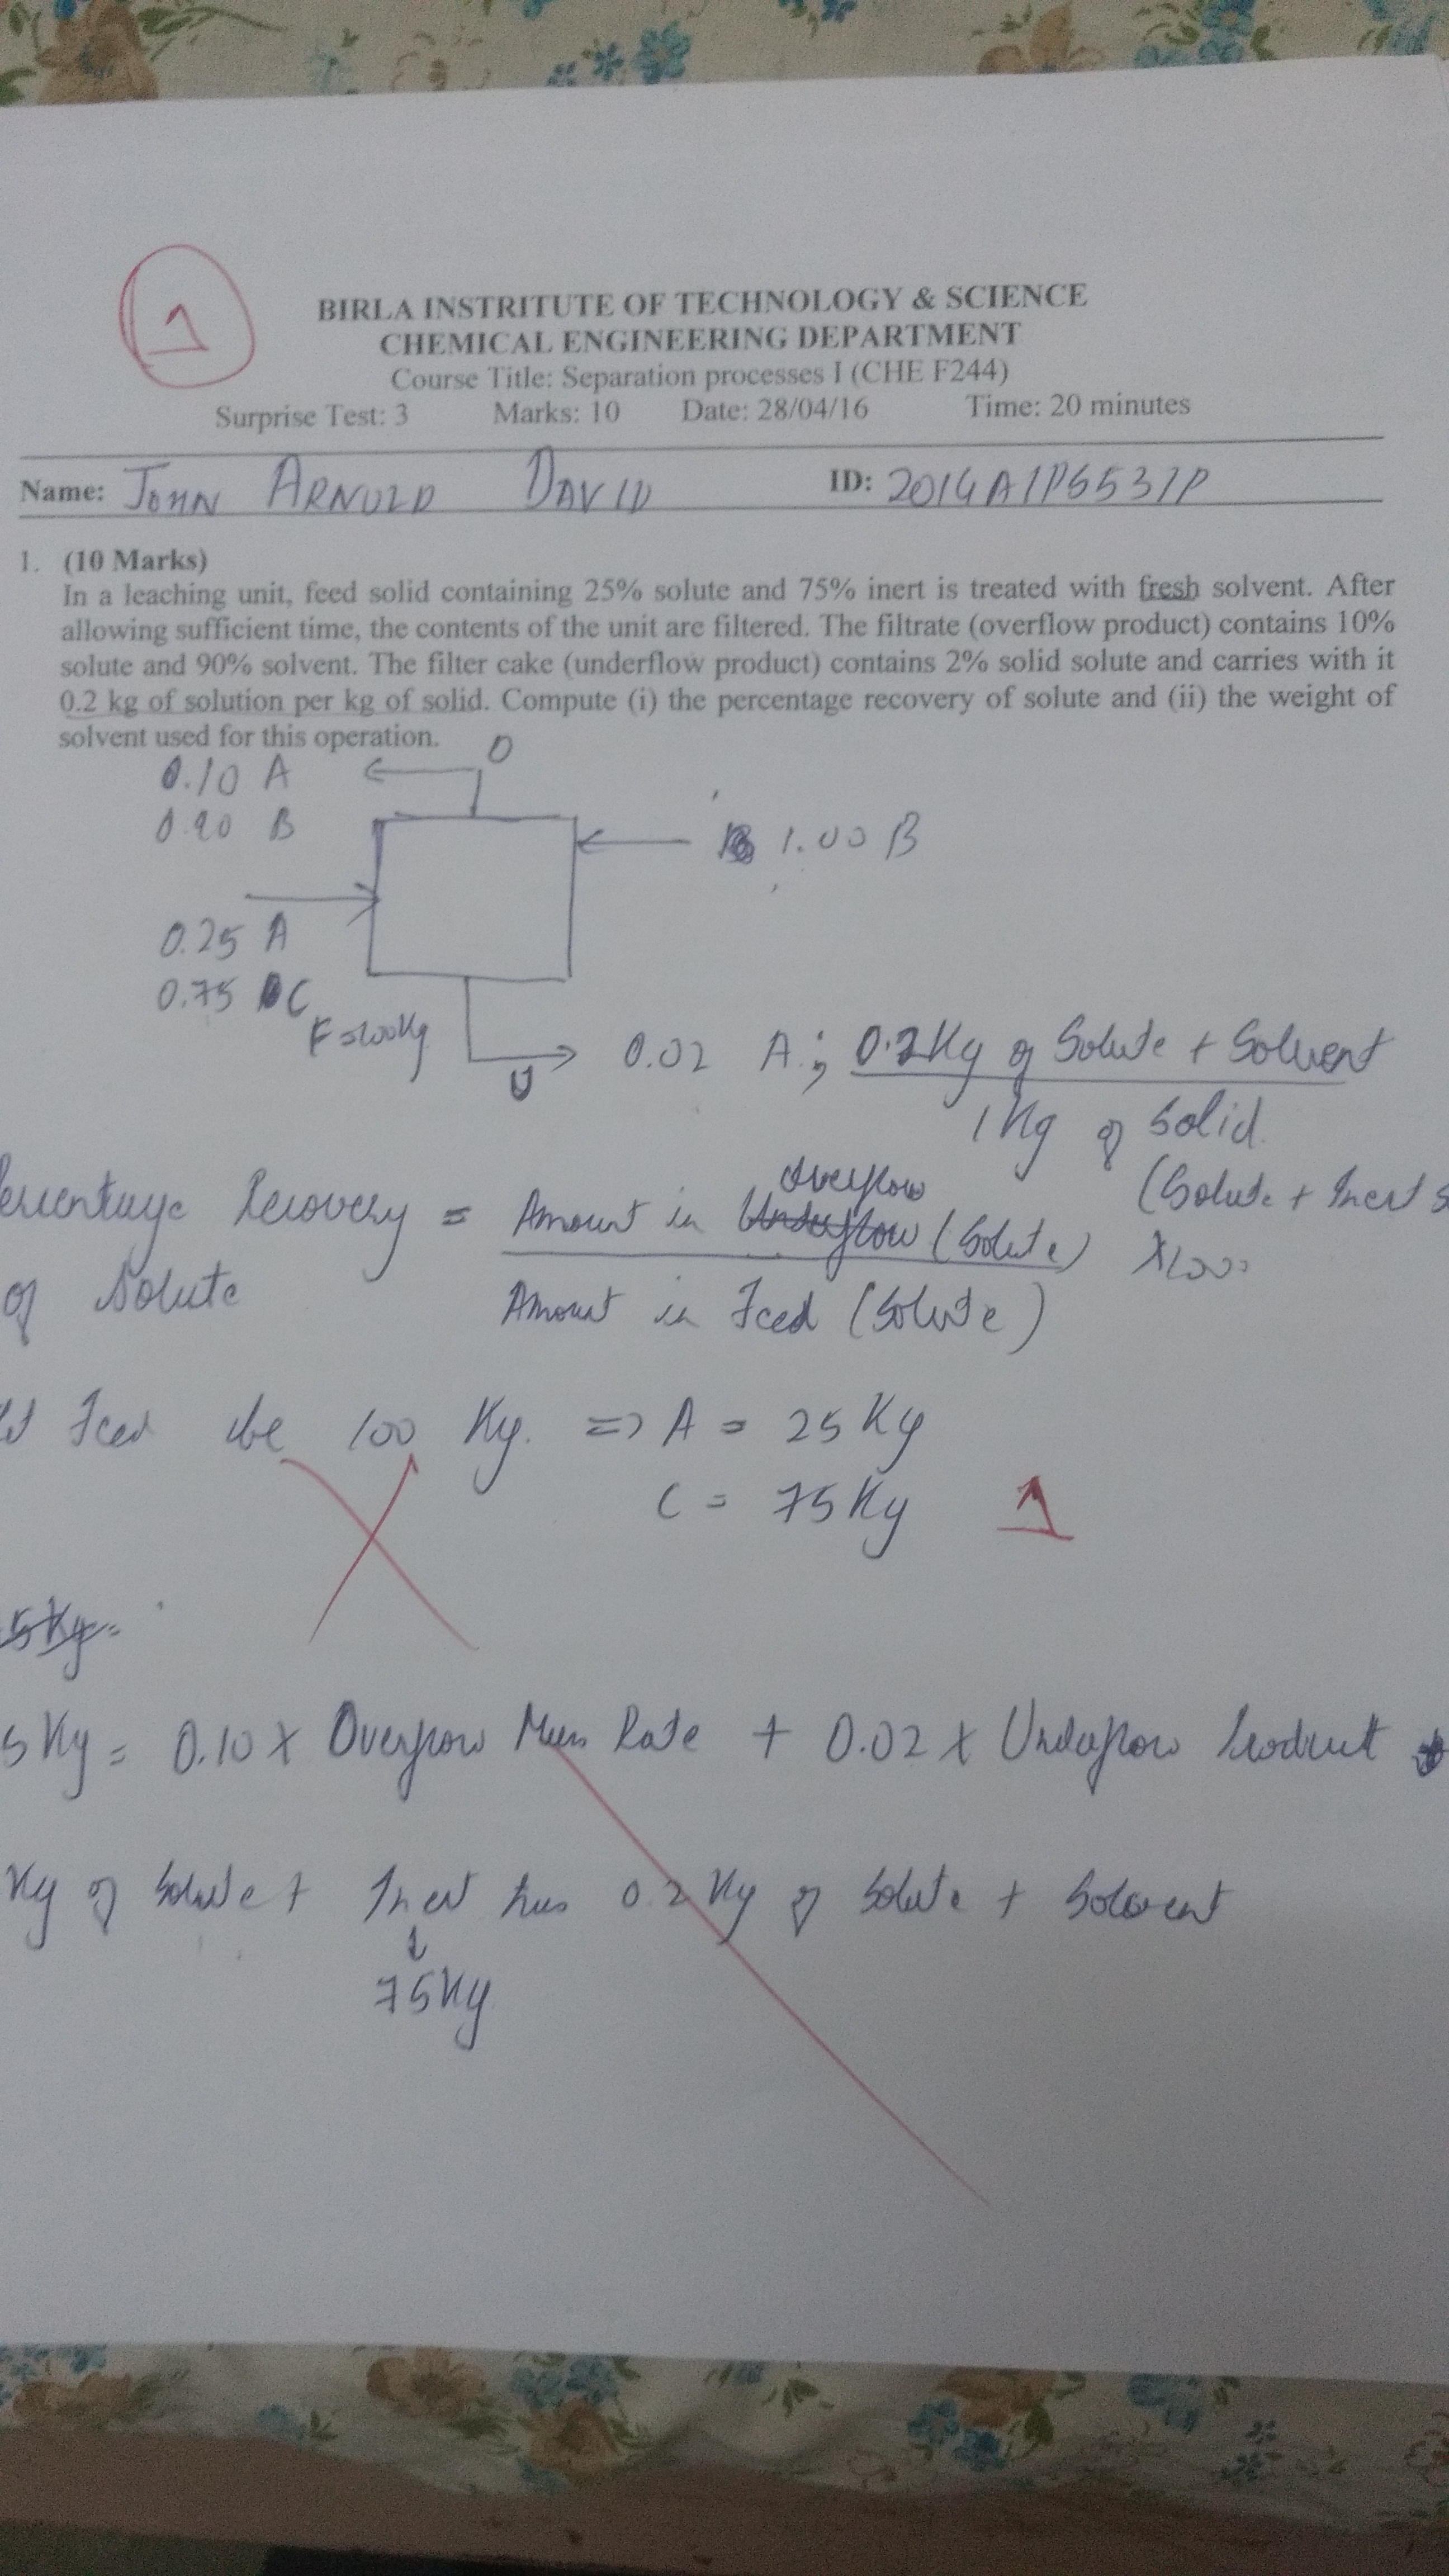 1
BIRLA INSTRITUTE OF TECHNOLOGY & SCIENCE
CHEMICAL ENGINEERING DEPARTMENT
Course Title: Separation processes I (CHE F244)
Surprise Test: 3 Marks: 10 Date: 28/04/16 Time: 20 minutes
Name: JOHN ARNOLD DAVID ID: 2014A1PS531P
1. (10 Marks)
In a leaching unit, feed solid containing 25% solute and 75% inert is treated with fresh solvent. After
allowing sufficient time, the contents of the unit are filtered. The filtrate (overflow product) contains 10%
solute and 90% solvent. The filter cake (underflow product) contains 2% solid solute and carries with it
0.2 kg of solution per kg of solid. Compute (i) the percentage recovery of solute and (ii) the weight of
solvent used for this operation.
O
0.10 A
0.90 B
1.00 B
0.25 A
0.75 C
F = 100 Kg
U
0.02 A ; 0.2 Kg of Solute + Solvent
1 Kg of Solid
(Solute + Inert
Percentage Recovery = Amount in Overflow (Solute) X100
of Solute
Amount in Feed (Solute)
Feed be 100 Kg. => A = 25 Kg
C = 75 Kg 1
5 Kg =
5 Kg = 0.10 X Overflow Mass Rate + 0.02 X Underflow Product
Kg of Solute + Inert has 0.2 Kg of Solute + Solvent
↓
75 Kg